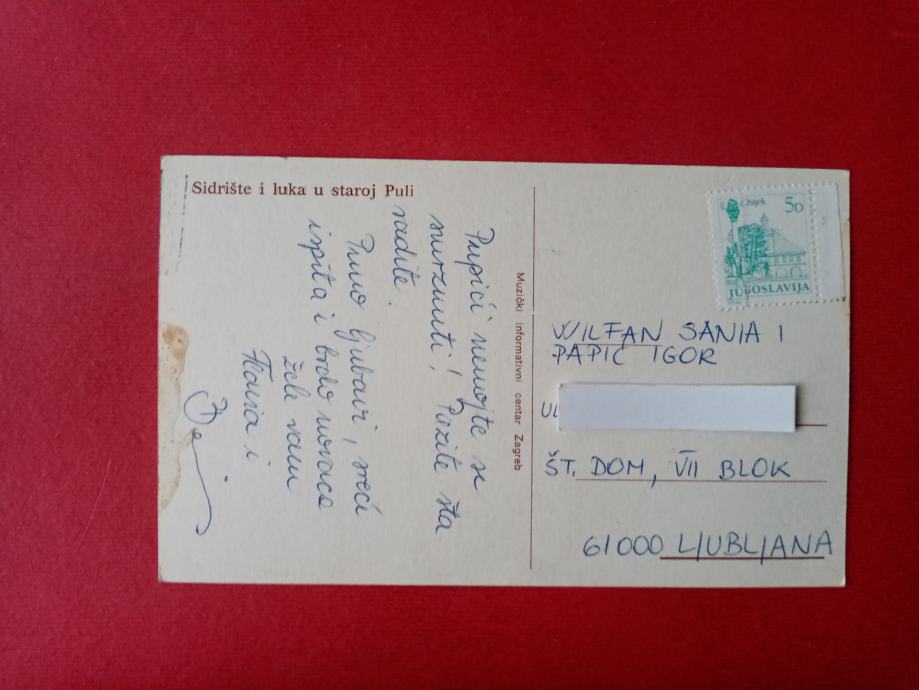 Sidrište i luka u staroj Puli
Pupići nemojte se
smrznuti! Pazite šta
radite.
Puno ljubavi, sreći
ispita i brdo novaca
žele vam
i
Muzički informativni centar Zagreb
Osijek 5D
JUGOSLAVIJA
WILFAN SANJA I
PAPIĆ IGOR
UL
ŠT. DOM, VII BLOK
61000 LJUBLJANA